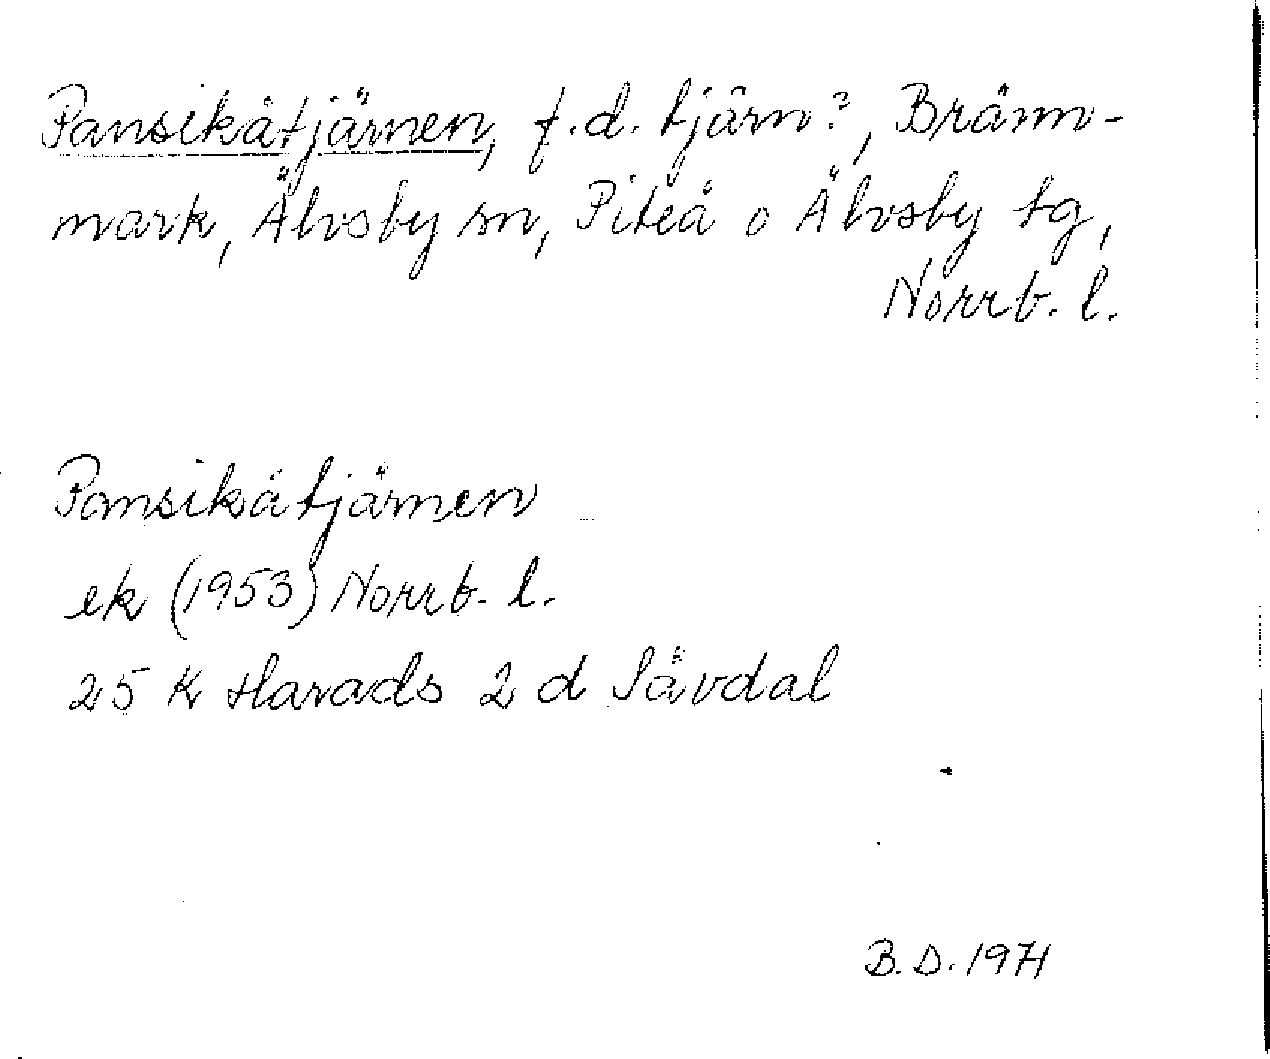 Pansikåtjärnen, f.d. tjärn?, Bränn-
mark, Älvsby sn, Piteå o Älvsby tg,
Norrb. l.
Pansikåtjärnen
ek (1953) Norrb. l.
25 K Harads 2 d Sävdal
B.D. 1971